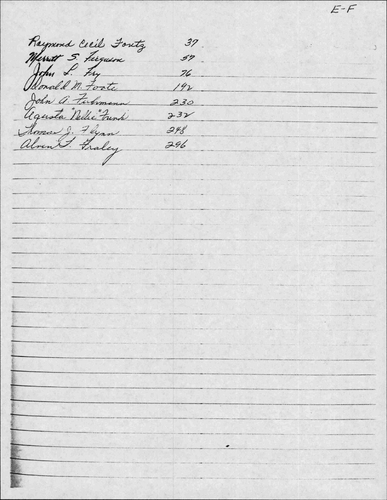 E-F
Raymond Cecil Foutz 37
Merritt S. Ferguson 57
John L. Fry 76
Donald M. Foote 192
John A. Fuhrmann 230
Agusta "Nellie" Funk 232
Thomas J. Flynn 248
Alven F. Fraley 296